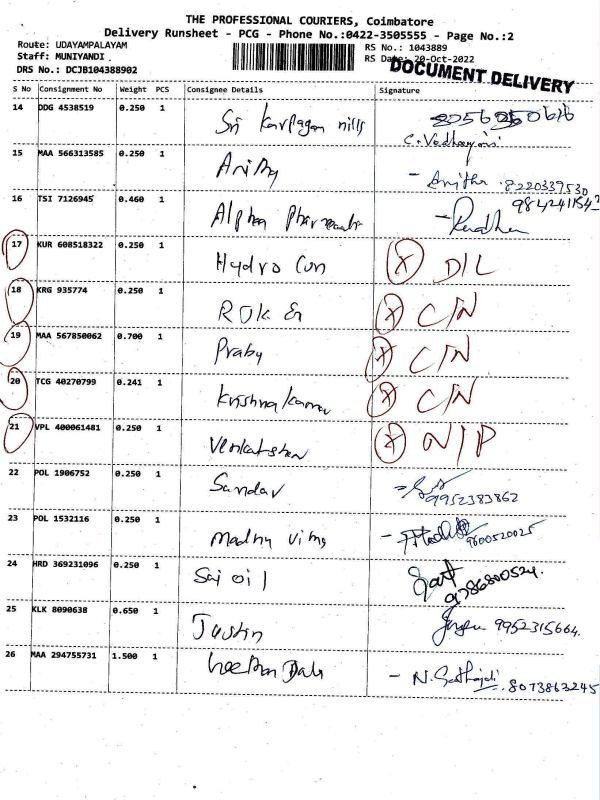 THE PROFESSIONAL COURIERS, Coimbatore
Delivery Runsheet - PCG - Phone No.:0422-3505555 - Page No.:2
Route: UDAYAMPALAYAM
RS No.: 1043889
Staff: MUNIYANDI
RS Date: 20-Oct-2022
DRS No.: DCJB104388902
DOCUMENT DELIVERY
S No Consignment No Weight PCS Consignee Details Signature
14 DDG 4538519 0.250 1 Sri Karpagam mills
15 MAA 566313585 0.250 1 Anitha - Anitha . 8220339530
16 TSI 7126945 0.460 1 Alpha
17 KUR 608518322 0.250 1 Hydro Con X D/L
18 KRG 935774 0.250 1 X C/N
19 MAA 567850062 0.700 1 Prabu X C/N
20 TCG 40270799 0.241 1 Krishna Kumar X C/N
21 VPL 400061481 0.250 1 X N/P
22 POL 1906752 0.250 1 9952383862
23 POL 1532116 0.250 1 Madhu 9600520025
24 HRD 369231096 0.250 1 Sai oil 9786800524.
25 KLK 8090638 0.650 1 Justin 9952315664.
26 MAA 294755731 1.500 1 - N. 8073863245